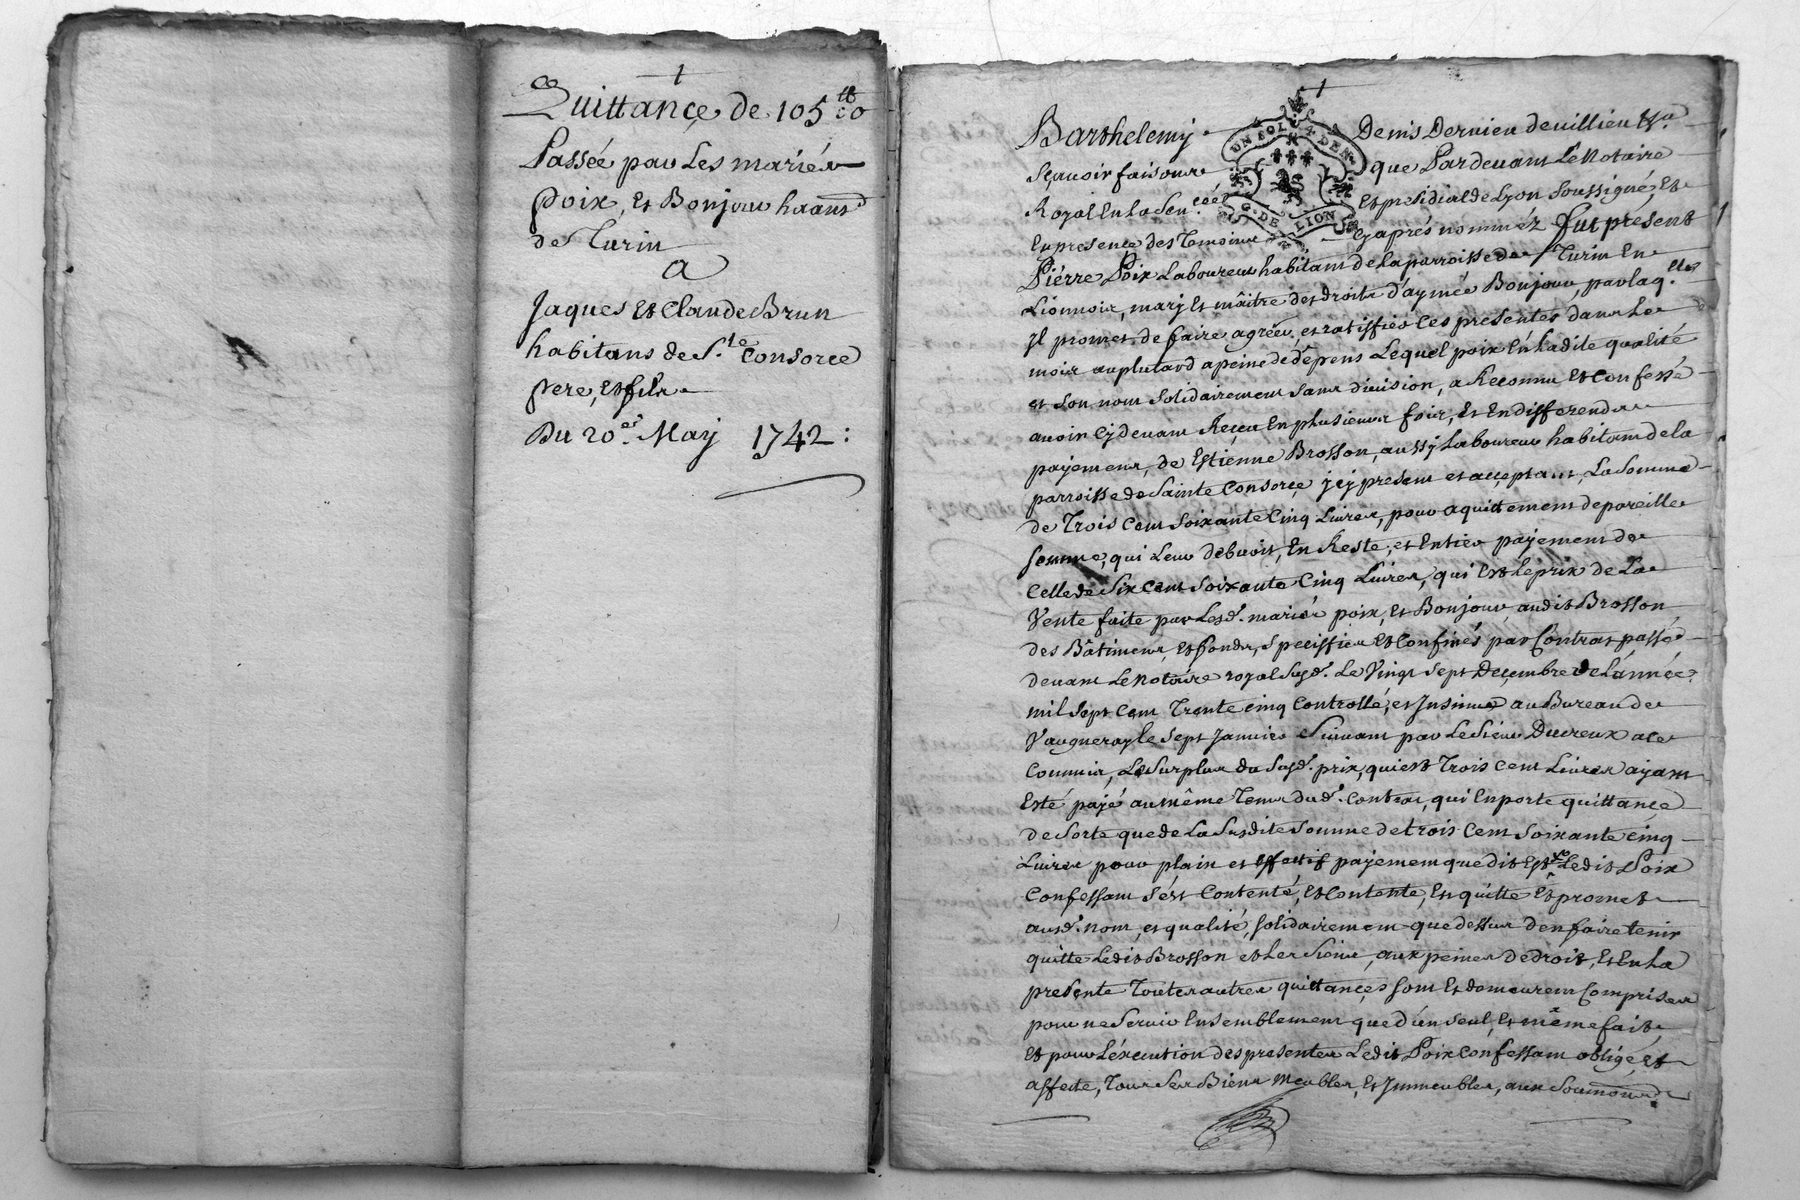 1
Quittance de 105 ₶
Passée par Les mariés
poix, Et Bonjour
de Turin
a
Jaques Et Claude Brun
habitans de S.te Consorce
pere, Et fils
Du 20.e May 1742 :
1
Barthelemy Denis Dervieu de villieu
Sçavoir faisons que Pardevant Le Notaire
Royal En la Sen.cée Et présidial de Lyon Soussigné, Et
En presence des Temoins cy aprés nommés fut present
UN SOL 4. DEN.
G. DE LION
Piérre Poix Laboureur habitant de La parroisse de Turin En
Lionnois, mary Et mâitre des droits d'aymée Bonjour, par laq.lle
Jl promet de faire agréer, et ratiffier Ces presentes dans Le
mois au plutard a peine de dépens Lequel poix En Ladite qualité
et Son nom Solidairement Sans division, a Reconnu Et Confessé
avoir Cy devant Reçeu En plusieurs fois, Et En differends
payemens, de Estienne Brosson, aussy Laboureur habitant de la
parroisse de Sainte Consorce jcy present et acceptant, La Somme
de Trois Cent Soixante Cinq Livres, pour aquittement de pareille
Somme, qui Leur debvoit, En Reste, et Entier payement de
Celle de Six Cent Soixante Cinq Livres, qui Est Le prix de La
Vente faite par Lesd. mariés poix, Et Bonjour, audit Brosson
des Bâtimens, Et fonds, Speciffiés Et Confinés par Contrat passé
devant Le Notaire royal Susd. Le Vingt Sept Decembre de L'année
mil Sept Cent Trente Cinq Controllé, et Insinué au Bureau de
Vaugneray le Sept Janvier Suivant par Le Sieur Ducreux a ce
Commis, Le Surplus du Susd. prix, qui est Trois Cent Livres ayant
Esté payé au même Tems dud. Contrat, qui En porte quittance
de Sorte que de La Susdite Somme de trois Cent Soixante Cinq
Livres pour plain et effectif payement que dit Est Ledit Poix
Confessant s'ést Contenté, Et Contente, Et quitte Et promet
ausd. nom, et qualité, Solidairement que dessus d'en faire tenir
quitte Ledit Brosson et Les Siens, aux peines de droit, Et En La
presente Toutes autres quittances Sont Et demeurent Comprises
pour ne Servir Ensemblement que d'un seul, Et même fait,
Et pour L'éxecution des presentes Ledit Poix Confessant obligé, et
affecté, Tous Ses Biens Meubles, Et Immeubles, aux